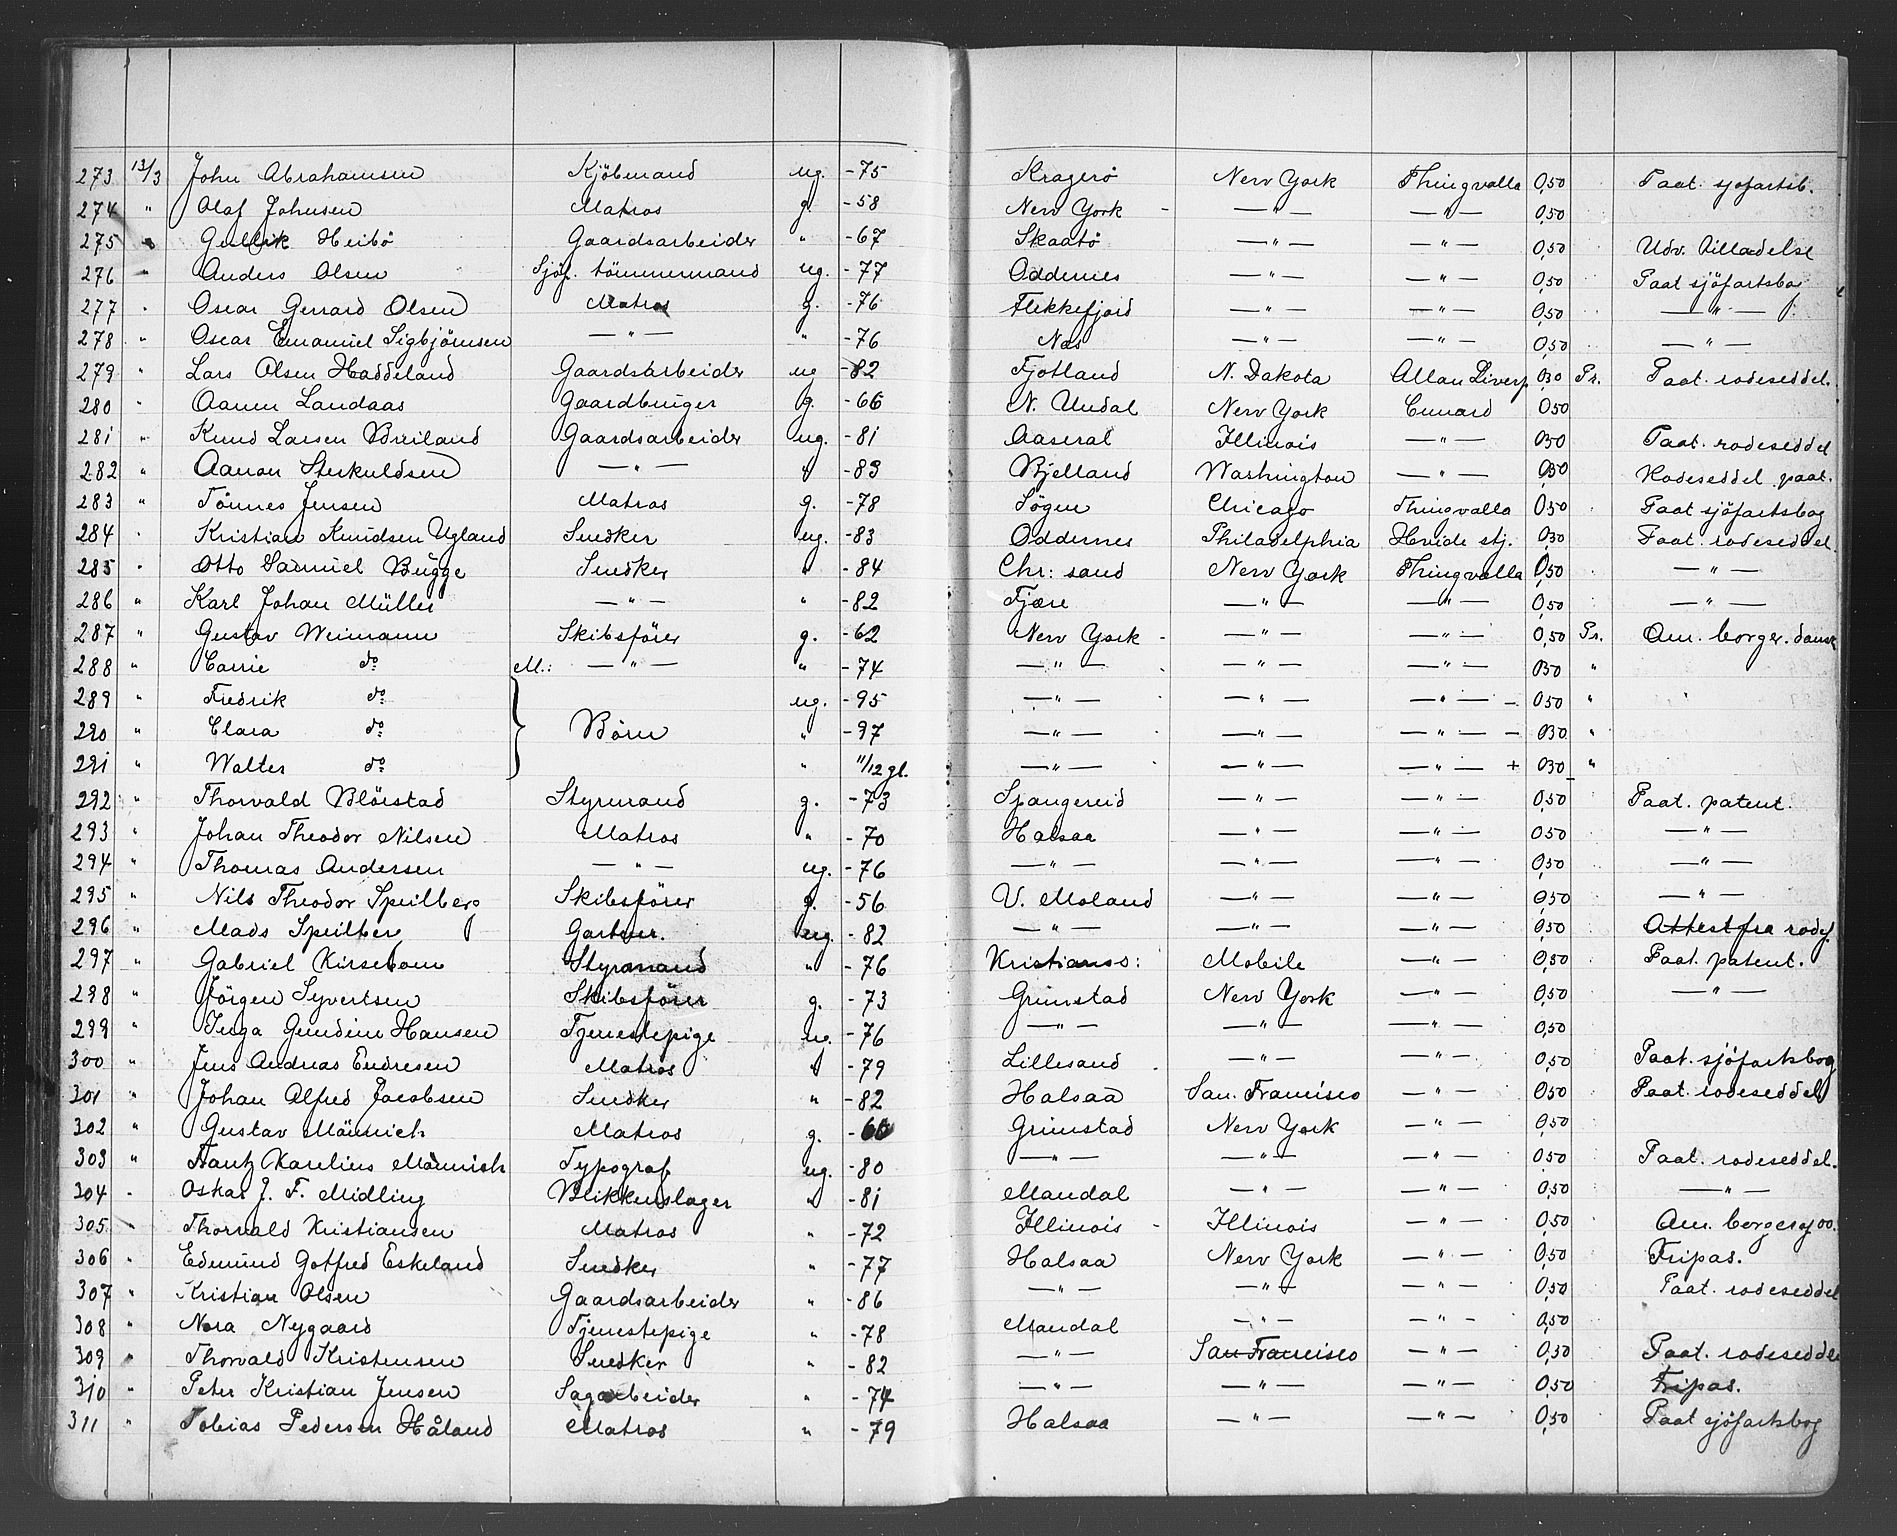 273 13/3 John Abrahamsen Kjöbmand ug. -75 Kragerø New York Thingvalla 0,50 Paat. sjöfartsb.
274 " Olaf Johnsen Matros g. -58 New York - —"— —"— 0,50
275 " Gullik Heibö Gaardsarbeider " -67 Skaatö —"— —"— 0,50 Udv. tilladelse
276 " Anders Olsen Sjöf. tömmermand ug. -77 Oddernes —"— —"— 0,50 Paat sjöfartsbog
277 " Oscar Gerrard Olsen Matros g. -76 Flekkefjord —"— —"— 0,50 —"—
278 " Oscar Emanuel Sigbjörnsen —"— " -76 Nes —"— —"— 0,50 —"—
279 " Lars Olsen Haddeland Gaardsarbeider ug -82 Fjotland N. Dakota Allan Liverp 0,50 Pr. Paat. rodeseddel.
280 " Aanen Landaas Gaardbruger g. -66 N. Undal New York Cunard 0,50
281 " Knud Larsen Breiland Gaardsarbeider ug. -81 Aaseral Illinois —"— 0,50 Paat. rodeseddel
282 " Aanon Sterkuldsen —"— " -83 Bjelland Washington —"— 0,50 Rodeseddel paat.
283 " Tönnes Jensen Matros g. -78 Sögne Chicago Thingvalla 0,50 Paat sjöfartsbog
284 " Kristian Knudsen Ugland Snedker ug. -83 Oddernes Philadelphia Hvide stj. 0,50 Paat. rodeseddel.
285 " Otto Samuel Bugge Snedker " -84 Chr: sand New York Thingvalla 0,50 —"—
286 " Karl Johan Müller —"— " -82 Fjære —"— —"— 0,50 —"—
287 " Gustav Weimann Skibsförer g. -62 New York - —"— —"— 0,50 Pr. Am. borger. dansk
288 " Carrie do M.: —"— " -74 —"— —"— —"— 0,50 "
289 " Fredrik do ug. -95 —"— —"— —"— - 0,50 "
290 " Clara do Börn " -97 —"— —"— —"— - 0,50 "
291 " Walter do " 11/12 gl. —"— —"— —"— + 0,50 "
292 " Thorvald Blörstad Styrmand g. -73 Spangereid —"— —"— 0,50 Paat. patent.
293 " Johan Theodor Nilsen Matros " -70 Halsaa —"— —"— 0,50 —"—
294 " Thomas Andersen —"— ug. -76 —"— —"— —"— 0,50 —"—
295 " Nils Theodor Speilberg Skibsförer g. -56 V. Moland —"— —"— 0,50 —"—
296 " Mads Speilberg Gartner. ug. -82 —"— —"— —"— 0,50 Attest fra rodef.
297 " Gabriel Kirsebom Styrmand " -76 Kristianss: Mobile —"— 0,50 Paat. patent.
298 " Jörgen Syvertsen Skibsförer g. -73 Grimstad New York —"— 0,50 —"—
299 " Inga Gundine Hansen Tjenestepige ug. -76 —"— —"— —"— 0,50
300 " Jens Andreas Endresen Matros " -79 Lillesand —"— —"— 0,50 Paat. sjöfartsbog
301 " Johan Alfred Jacobsen Snedker " -82 Halsaa San Francisco —"— 0,50 Paat. rodeseddel
302 " Gustav Männich Matros g. -60 Grimstad New York —"— 0,50
303 " Frantz Karelius Männich Typograf ug. -80 —"— —"— —"— 0,50 Paat. rodeseddel.
304 " Oskar J. F. Midling Blikkenslager " -81 Mandal —"— —"— 0,50 —"—
305 " Thorvald Kristiansen Matros " -72 Illinois - Illinois —"— 0,50 Am. borger
306 " Edmund Gotfred Eskeland Snedker " -77 Halsaa New York —"— 0,50 Fripas.
307 " Kristian Olsen Gaardsarbeider " -86 —"— —"— —"— 0,50 Paat. rodeseddel
308 " Nora Nygaard Tjenestepige " -78 Mandal —"— —"— 0,50
309 " Thorvald Kristensen Snedker " -82 —"— San Francisco —"— 0,50 Paat. rodeseddel
310 " Peter Kristian Jensen Sagarbeider " -74 —"— —"— —"— 0,50 Fripas.
311 " Tobias Pedersen Håland Matros " -79 Halsaa —"— —"— 0,50 Paat sjöfartsbog